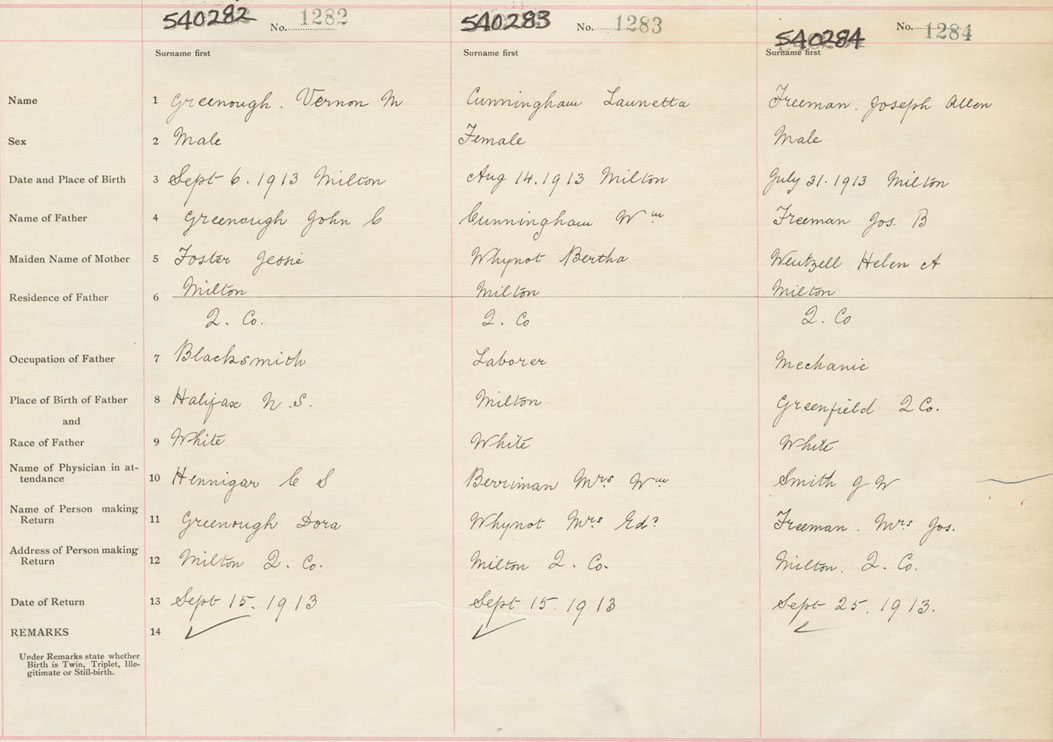 540282 No. 1282 540283 No. 1283 540284 No. 1284
Surname first Surname first Surname first
Name 1 Greenough. Vernon M Cunningham Launetta Freeman. Joseph Allen
Sex 2 Male Female Male
Date and Place of Birth 3 Sept 6. 1913 Milton Aug 14. 1913 Milton July 31. 1913 Milton
Name of Father 4 Greenough John C Cunningham Wm Freeman Jos. B
Maiden Name of Mother 5 Foster Jessie Whynot Bertha Wentzell Helen A
Residence of Father 6 Milton Milton Milton
Q. Co. Q. Co Q. Co
Occupation of Father 7 Blacksmith Laborer Mechanic
Place of Birth of Father 8 Halifax N.S. Milton Greenfield Q Co.
and
Race of Father 9 White White White
Name of Physician in at-
tendance 10 Hennigar C S Berriman Mrs Wm Smith J W
Name of Person making
Return 11 Greenough Dora Whynot Mrs Edd Freeman. Mrs Jos.
Address of Person making
Return 12 Milton Q. Co. Milton Q. Co. Milton. Q. Co.
Date of Return 13 Sept 15. 1913 Sept 15. 1913 Sept 25. 1913.
REMARKS 14
Under Remarks state whether
Birth is Twin, Triplet, Ille-
gitimate or Still-birth.